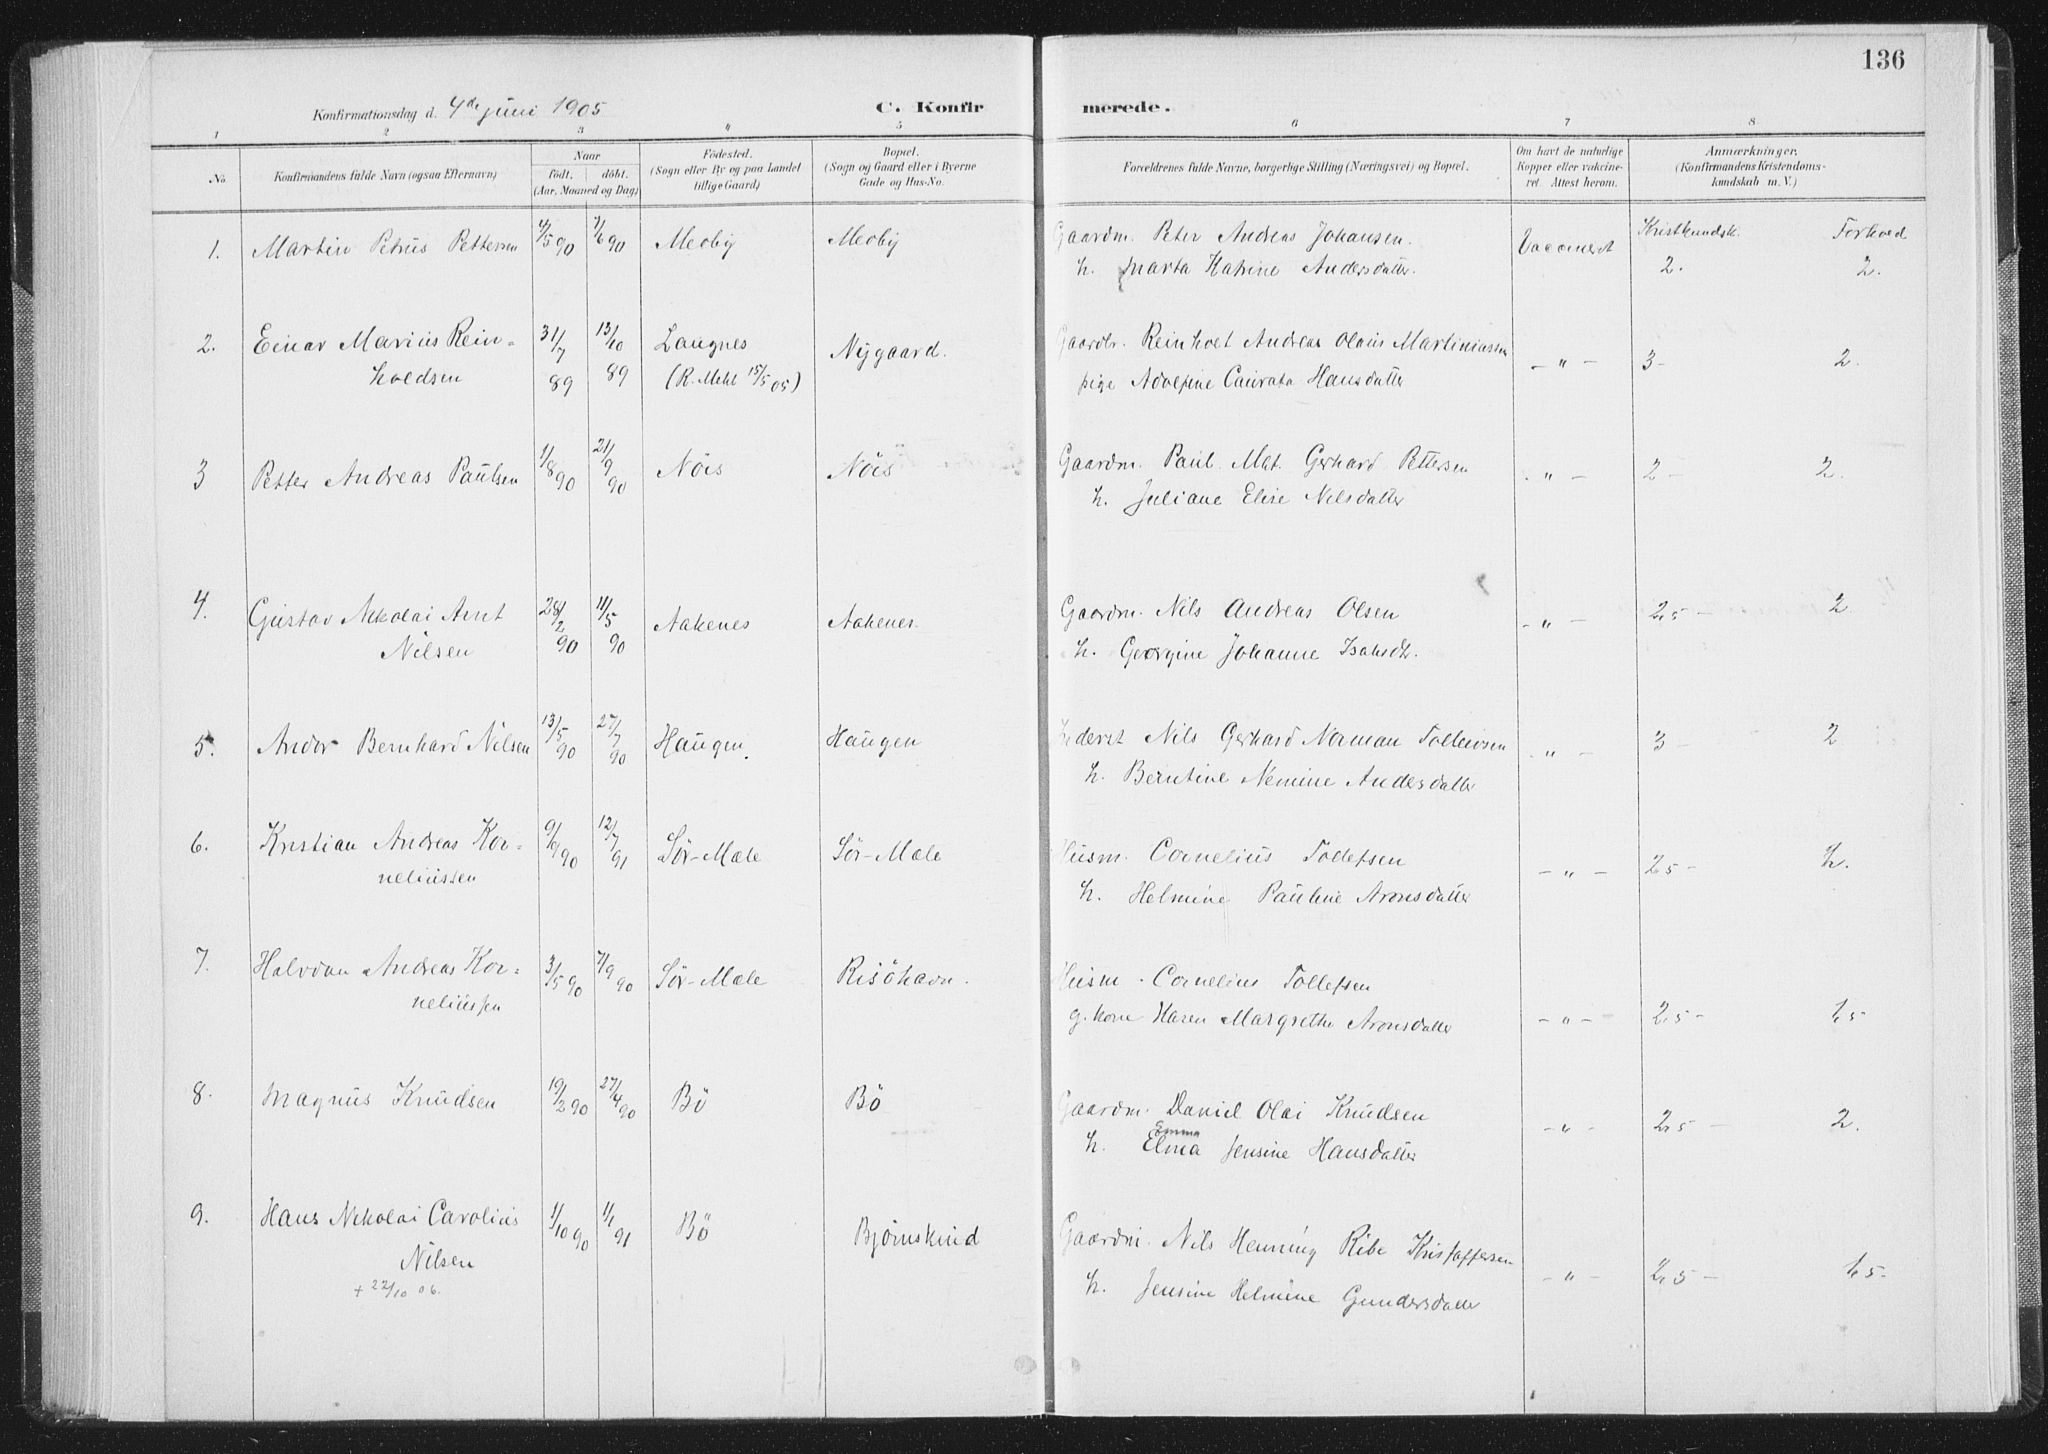 136
Konfirmationsdag d. 4de juni 1905
C. Konfirmerede.
1 2 3 4 5 6 7 8
No
Konfirmandens fulde Navn (ogsaa Efternavn)
Naar
födt. döbt.
(Aar, Maaned og Dag)
Födested.
(Sogn eller By og paa Landet
tillige Gaard)
Bopæl.
(Sogn og Gaard eller i Byerne
Gade og Hus-No.
Forældrenes fulde Navne, borgerlige Stilling (Næringsvei) og Bopæl.
Om havt de naturlige
Kopper eller vakcine-
ret. Attest herom.
Anmærkninger.
(Konfirmandens Kristendoms-
kundskab m. V.)
Kristkundsk. Forhold
1. Martin Petrus Pettersen 4/5 90 7/6 90 Meoby Meoby Gaardm. Peter Andreas Johansen. Vaccineret 2. 2.
h. Marta Katrine Andersdatter.
2. Einar Marius Rein= 31/7 89 13/10 89 Langnes Nygaard. Gaardbr. Reinholt Andreas Olaus Martiniussen - " - 3- 2.
holdsen (R. Mehl 15/5 05) pige Adolfine Caurata Hansdatter
3 Petter Andreas Paulsen 1/8 90 21/9 90 Nöis Nöis Gaardm. Paul Mat. Gerhard Pettersen - " - 2 - 2.
h. Juliane Elise Nilsdatter
4. Gustav Nikolai Arnt 28/2 90 11/5 90 Aakenes Aakenes. Gaardm. Nils Andreas Olsen - " - 2,5 - 2.
Nilsen h. Georgine Johanne Isaksdtr.
5. Andor Bernhard Nilsen 13/5 90 27/7 90 Haugen. Haugen Nils Gerhard Norman Tollevsen - " - 3 - 2
h. Berntine Nemine Andersdatter
6. Kristian Andreas Kor= 9/9 90 12/7 91 Sör-Mæle Sör-Mæle Husm. Cornelius Tollefsen - " - 2,5 - 2.
neliussen h. Helmine Pauline Aronsdatter
7. Halvdan Andreas Kor= 3/5 90 7/9 90 Sör-Mæle Risöhavn. Husm. Cornelius Tollefsen
neliussen g. kone Karen Margrethe Aronsdatter - " - 2,5 - 1,5
8. Magnus Knudsen 19/2 90 27/4 90 Bö Bö Gaardm. Daniel Olai Knudsen - " - 2,5 - 2.
Emma
h. Elma Jensine Hansdatter
9. Hans Nikolai Carolius 1/10 90 1/1 91 Bö Bjørnskind Gaardm. Nils Henning Ribe Kristoffersen - " - 2,5 - 1,5-
Nilsen h. Jensine Helmine Gundersdatter
+ 22/10 06.